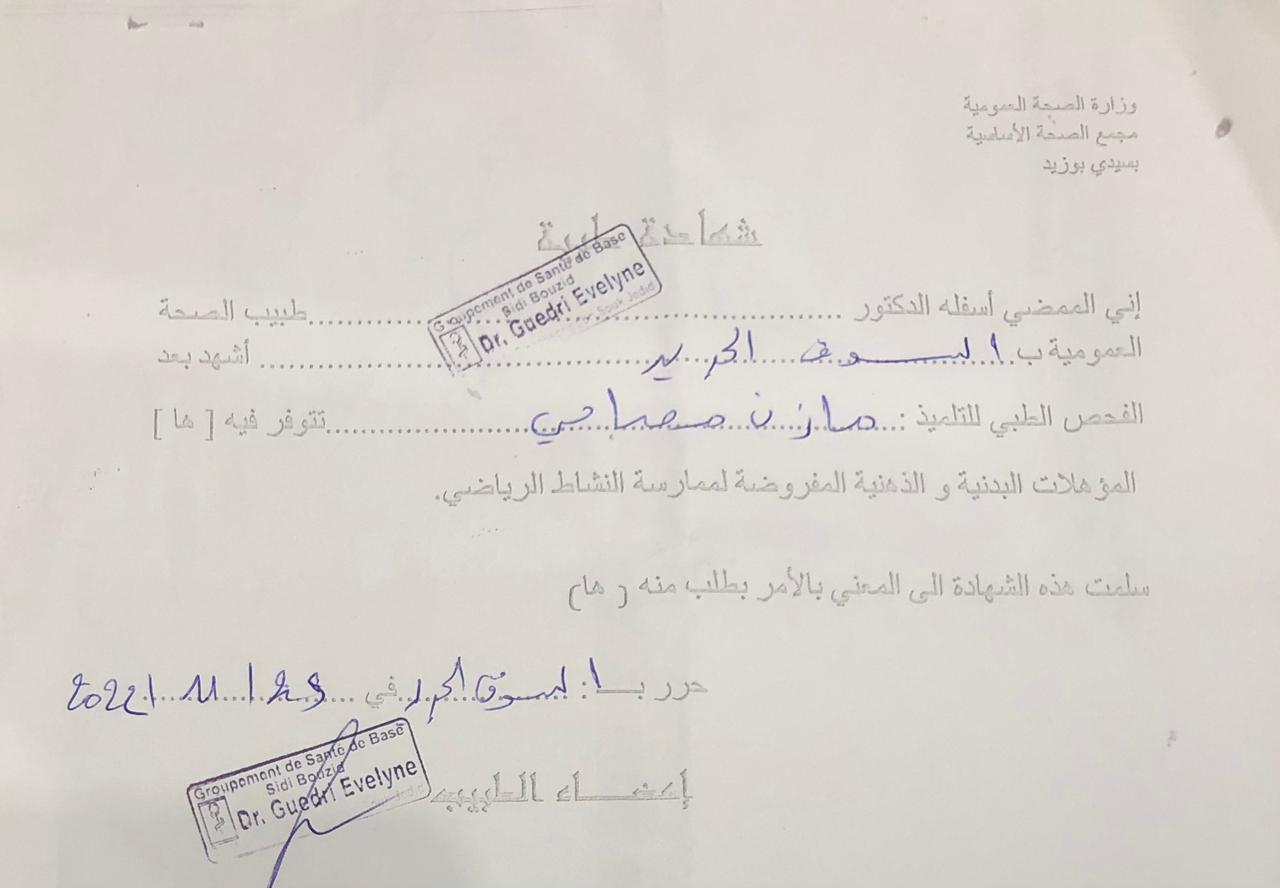 وزارة الصحة العمومية
مجمع الصحة الأساسية
بسيدي بوزيد
شهادة طبية
Groupement de Santé de Base
Sidi Bouzid
Dr. Guedri Evelyne
Souk Jedid
إني الممضي أسفله الدكتور ........ طبيب الصحة
العمومية ب. السوق الجديد ........ أشهد بعد
الفحص الطبي للتلميذ : مازن مصباحي ........ تتوفر فيه [ ها ]
المؤهلات البدنية و الذهنية المفروضة لممارسة النشاط الرياضي.
سلمت هذه الشهادة الى المعني بالأمر بطلب منه ( ها)
حرر بـا: السوق الجديد في ... / 11 / 2022
إمضاء الطبيب
Groupement de Santé de Base
Sidi Bouzid
Dr. Guedri Evelyne